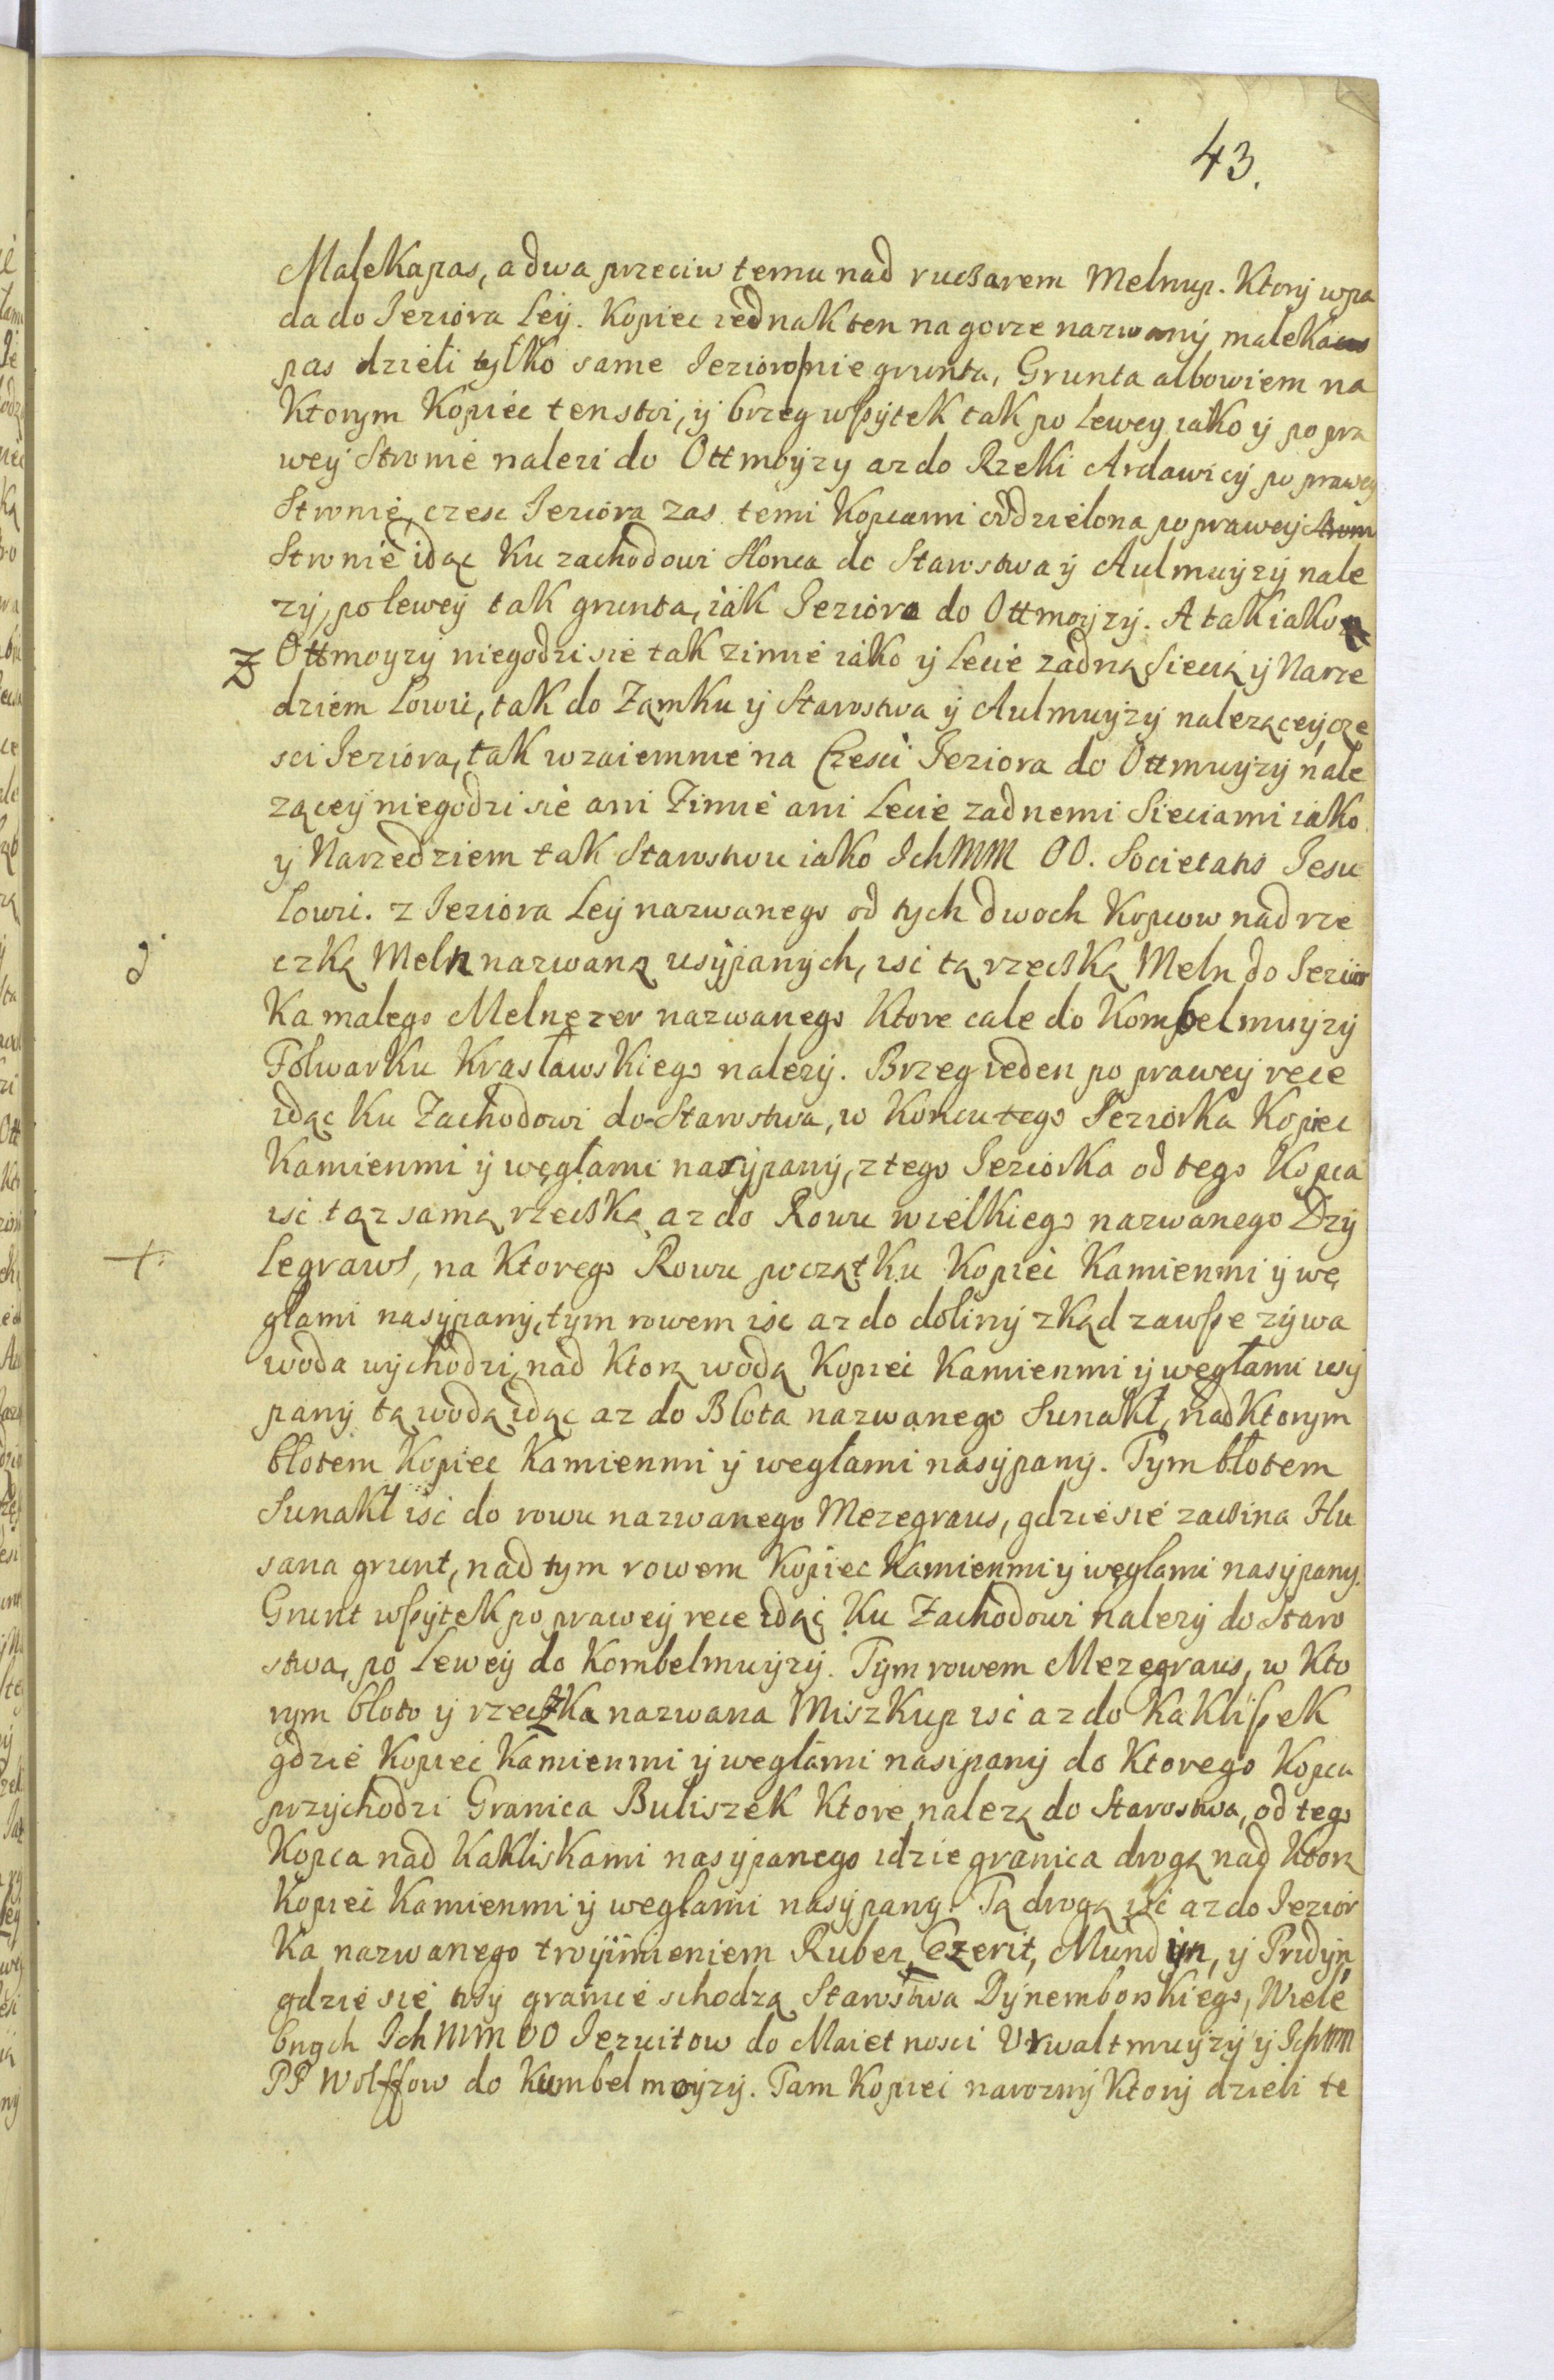 43.
Malekapas, a dwa przeciw temu nad ruczarem Melnup. Ktory wpa
da do Jeziora Ley. Kopiec iednak ten na gorze nazwany maleka
pas dzieli tylko same Jezioro nie grunta, Grunta albowiem na
Ktorym Kopiec ten stoi, y brzeg wszytek tak po lewey iako y po pra
wey Stronie nalezi do Ottmoyzy az do Rzeki Ardawicy po prawey
Stronie, czesc Jeziora zas temi Kopcami oddzielona po prawey
Stronie idąc Ku zachodowi Slonca do Starostwa y Aulmuyzy nale
zy, po lewey tak grunta, iak Jeziora do Ottmoyzy. A tak iako z
Ottmoyzy niegodzi sie tak zimie iako y Lecie zadną Siecią y Narze
dziem Lowic, tak do Zamku y Starostwa y Aulmuyzy nalezącey cze
sci Jeziora, tak wzaiemnie na Czesci Jeziora do Ottmuyzy nale
zącey niegodzi sie ani Zimie ani Lecie zadnemi Sieciami iako
y Narzedziem tak Starostwu iako IchMM OO. Societatis Jesu
Lowic. z Jeziora Ley nazwanego od tych dwoch Kopcow nad rze
czką Meln nazwaną usypanych, isc tą rzeczką Meln do Jezior
Ka malego Melnezer nazwanego Ktore cale do Kombelmuyzy
Folwarku Krasławskiego nalezy. Brzeg ieden po prawey rece
idąc Ku Zachodowi do Starostwa, w Koncu tego Jeziorka Kopiec
Kamienmi y węglami nasypany, z tego Jeziorka od tego Kopca
isc tąz samą rzeczką az do Rowu wielkiego nazwanego Dzy
legraws, na Ktorego Rowu początku Kopiec Kamienmi y wę
głami nasypany, tym rowem isc az do doliny zkąd zawsze zywa
woda wychodzi, nad Ktorą wodą Kopiec Kamienmi y weglami usy
pany tą wodą idąc az do Blota nazwanego Sunakl, nad Ktorym
blotem Kopiec Kamienmi y weglami nasypany. Tym błotem
Sunakl isc do rowu nazwanego Mezegraus, gdzie sie zaczina Hu
sana grunt, nad tym rowem Kopiec Kamienmi y węglami nasypany.
Grunt wszytek po prawey rece idąc Ku Zachodowi nalezy do Staro
stwa, po Lewey do Kombelmuyzy. Tym rowem Mezegraus, w Kto
rym bloto y rzeczka nazwana Miszkup isc az do Kakliszek
gdzie Kopiec Kamienmi y weglami nasipany do Ktorego Kopca
przychodzi Granica Buliszek Ktore nalezą do Starostwa, od tego
Kopca nad Kakliskami nasypanego idzie granica drogą nad Ktorą
Kopiec Kamienmi y weglami nasypany. Tą drogą isc az do Jezior
Ka nazwanego troyimieniem Ruber Ezerit, Mundyn, y Prudyn
gdzie sie trzy granice schodzą Starostwa Dynemborskiego, Wiele
bnych IchMM OO Jezuitow do Maietnosci Urwaltmuyzy y IchMM
PP Wolffow do Kumbelmoyzy. Tam Kopiec narozny Ktory dzieli te